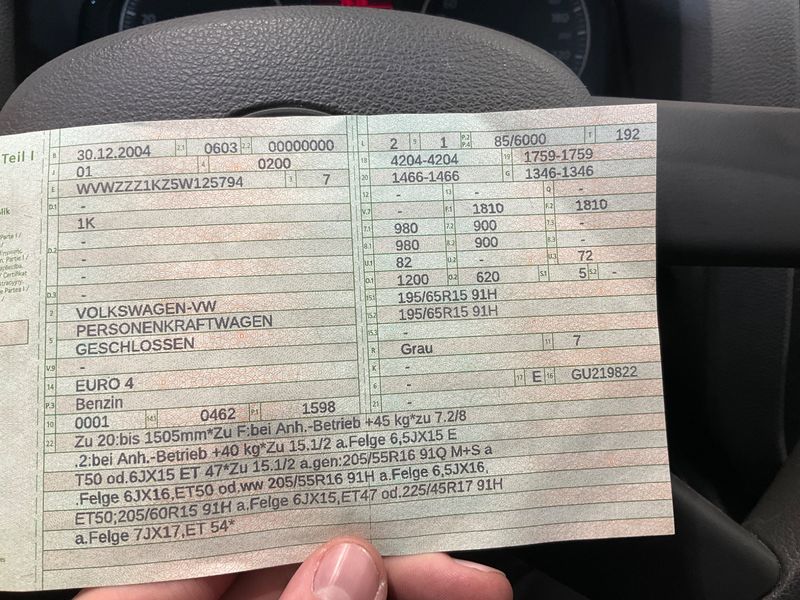 Teil I
B 30.12.2004 2.1 0603 2.2 00000000
J 01 4 0200
E WVWZZZ1KZ5W125794 3 7
D.1 -
1K
D.2 -
-
-
D.3 -
2 VOLKSWAGEN-VW
5 PERSONENKRAFTWAGEN
GESCHLOSSEN
V.9 -
14 EURO 4
P.3 Benzin
10 0001 14.1 0462 P.1 1598
L 2 9 1 P.2 P.4 85/6000 T 192
18 4204-4204 19 1759-1759
20 1466-1466 G 1346-1346
12 - 13 - Q -
V.7 - F.1 1810 F.2 1810
7.1 980 7.2 900 7.3 -
8.1 980 8.2 900 8.3 -
U.1 82 U.2 - U.3 72
O.1 1200 O.2 620 S.1 5 S.2 -
15.1 195/65R15 91H
15.2 195/65R15 91H
15.3 -
R Grau 11 7
K -
6 - 17 E 16 GU219822
21 -
22 Zu 20:bis 1505mm*Zu F:bei Anh.-Betrieb +45 kg*zu 7.2/8
.2:bei Anh.-Betrieb +40 kg*Zu 15.1/2 a.Felge 6,5JX15 E
T50 od.6JX15 ET 47*Zu 15.1/2 a.gen:205/55R16 91Q M+S a
.Felge 6JX16,ET50 od.ww 205/55R16 91H a.Felge 6,5JX16,
ET50;205/60R15 91H a.Felge 6JX15,ET47 od.225/45R17 91H
a.Felge 7JX17,ET 54*